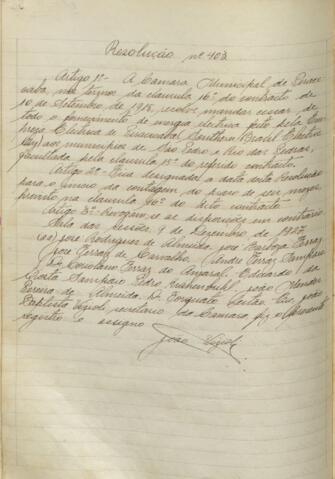 Resolução nº 403
Artigo 1º - A Camara Municipal de Piraci-
caba, nos termos da clausula 16ª do contracto de
10 de Setembro de 1915, resolve mandar cessar de
todo o fornecimento de energia electrica feito pela Em-
preza Electrica de Piracicaba (Southern Brazil Electric
Cº) aos municipios de São Pedro e Rio das Pedras,
facultado pela clausula 15ª do referido contracto.
Artigo 2º - Fica designada a data desta Resolução
para o inicio da contagem do praso de seis mezes,
previsto na clausula 16ª do dito contracto.
Artigo 3º - Revogam-se as disposições em contrario
Sala das sessões, 9 de Dezembro de
(aa) José Rodrigues de Almeida, José Barboza Ferraz
José Ferraz de Carvalho, André Ferraz Sampaio
Coriolano Ferraz do Amaral, Eduardo da
Costa Sampaio, Pedro João
Pereira de Almeida, Dr. Torquato Leitão. Eu, João
Baptista Vizioli, secretario da Camara, fiz o presente
registro e assigno
João Vizioli